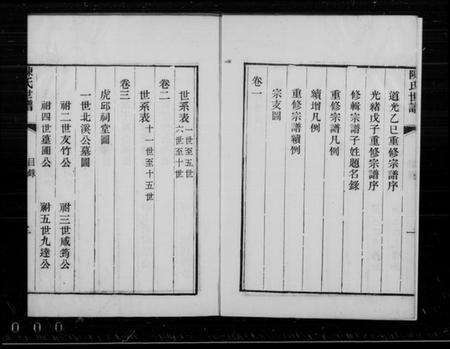 陳氏世譜
道光乙巳重修宗譜序
光緒戊子重修宗譜序
修輯宗譜子姓題名錄
重修宗譜凡例
續增凡例
重修宗譜續例
宗支圖
卷一
世系表 一世至五世 六世至十世
卷二
世系表 十一世至十五世
卷三
虎邱祠堂圖
一世北溪公墓圖
祔二世友竹公 祔三世咸筠公
祔四世蓮圃公 祔五世九達公
陳氏世譜 目錄
000